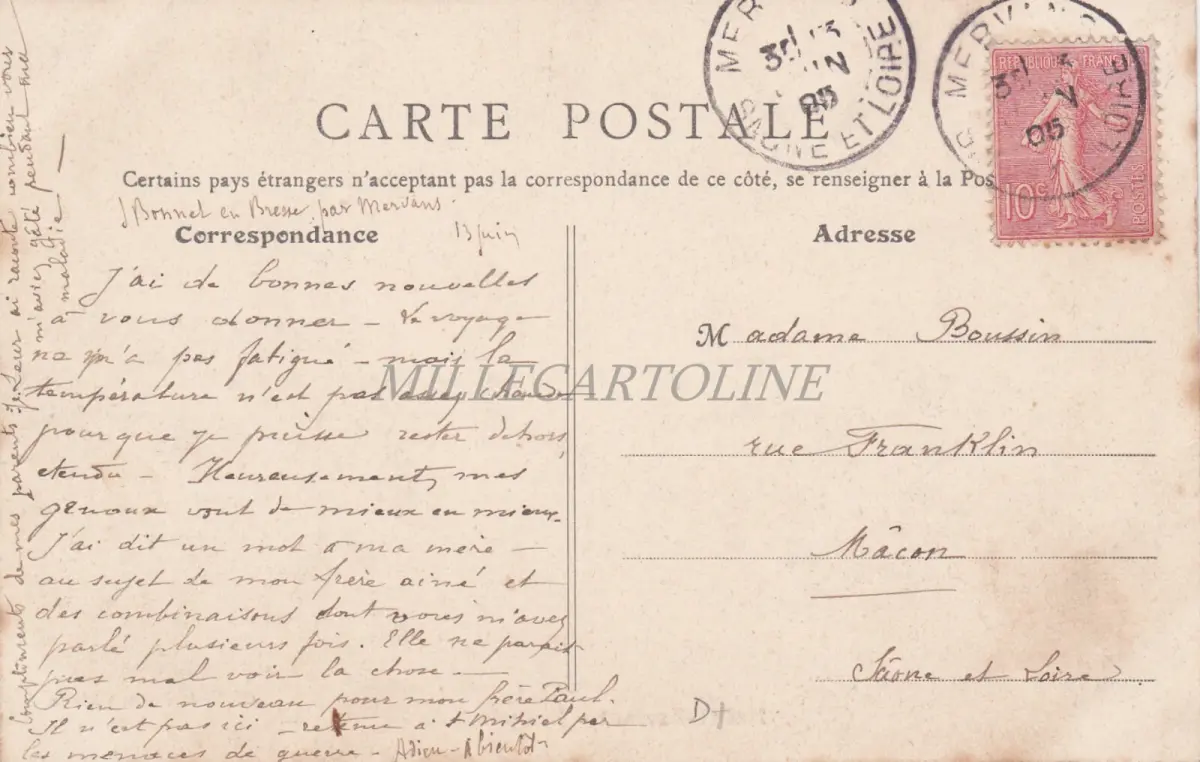 CARTE POSTALE
Certains pays étrangers n'acceptant pas la correspondance de ce côté, se renseigner à la Pos
Bonnet en Bresse par Mervans
13 juin
Correspondance
J'ai de bonnes nouvelles
à vous donner – Le voyage
ne m'a pas fatigué – mais la
température n'est pas assez chaude
pour que je puisse rester dehors
étendu – Heureusement, mes
genoux vont de mieux en mieux.
J'ai dit un mot à ma mère –
au sujet de mon frère aimé et
des combinaisons dont vous m'avez
parlé plusieurs fois. Elle ne parait
pas mal voir la chose –
Rien de nouveau pour mon frère Paul.
Il n'est pas ici – retenu à St Mihiel par
les menaces de guerre – Adieu – A bientôt
Compliments de mes parents. Je leur ai raconté combien vous
m'aviez gâté pendant ma
maladie –
Adresse
Madame Boussin
rue Franklin
Mâcon
Saône et Loire
D+
MERVANS
13
JUIN
05
SAONE ET LOIRE
MERVANS
05
LOIRE
REPUBLIQUE FRANÇ
10c
POSTES
MILLECARTOLINE